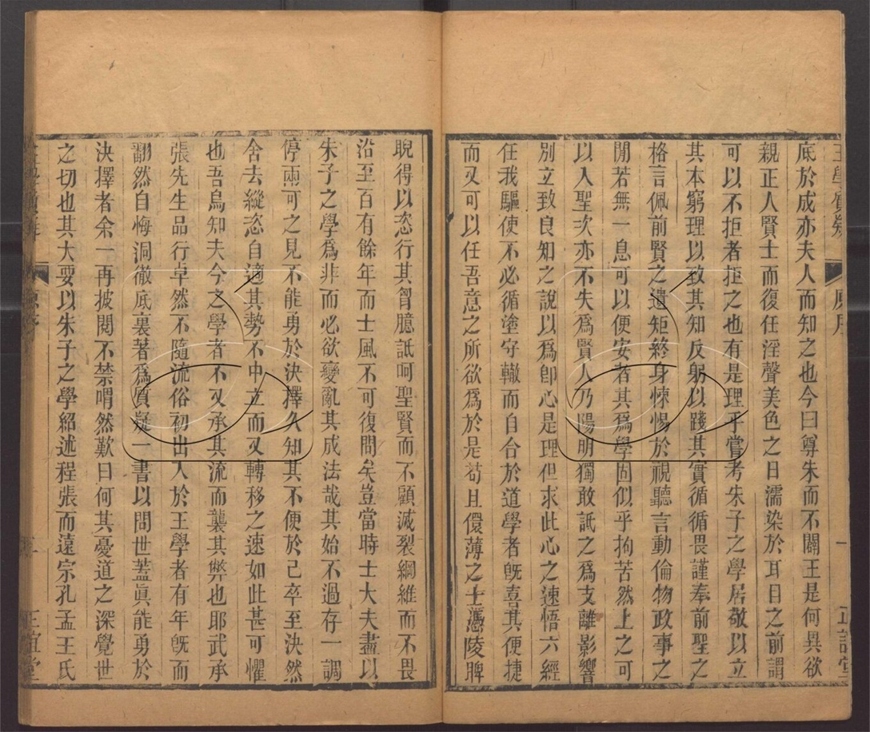 王學質疑
原序
一
正誼堂
底於成亦夫人而知之也今曰尊朱而不闢王是何異欲
親正人賢士而復任淫聲美色之日濡染於耳目之前謂
可以不拒者拒之也有是理乎嘗考朱子之學居敬以立
其本窮理以致其知反躬以踐其實循循畏謹奉前聖之
格言佩前賢之遺矩終身悚惕於視聽言動倫物政事之
閒若無一息可以便安者其爲學固似乎拘苦然上之可
以入聖次亦不失爲賢人乃陽明獨敢詆之爲支離影響
別立致良知之說以爲卽心是理但求此心之速悟六經
任我驅使不必循塗守轍而自合於道學者旣喜其便捷
而又可以任吾意之所欲爲於是苟且儇薄之士憑陵脾
睨得以恣行其胷臆詆呵聖賢而不顧滅裂綱維而不畏
沿至百有餘年而士風不可復問矣豈當時士大夫盡以
朱子之學爲非而必欲變亂其成法哉其始不過存一調
停兩可之見不能勇於決擇久知其不便於己卒至決然
舍去縱恣自適其勢不中立而又轉移之速如此甚可懼
也吾烏知夫今之學者不又承其流而襲其弊也耶武承
張先生品行卓然不隨流俗初出入於王學者有年旣而
翻然自悔洞徹底裏著爲質疑一書以問世蓋眞能勇於
決擇者余一再披閱不禁喟然歎曰何其憂道之深覺世
之切也其大要以朱子之學紹述程張而遠宗孔孟王氏
王學質疑
原序
正誼堂